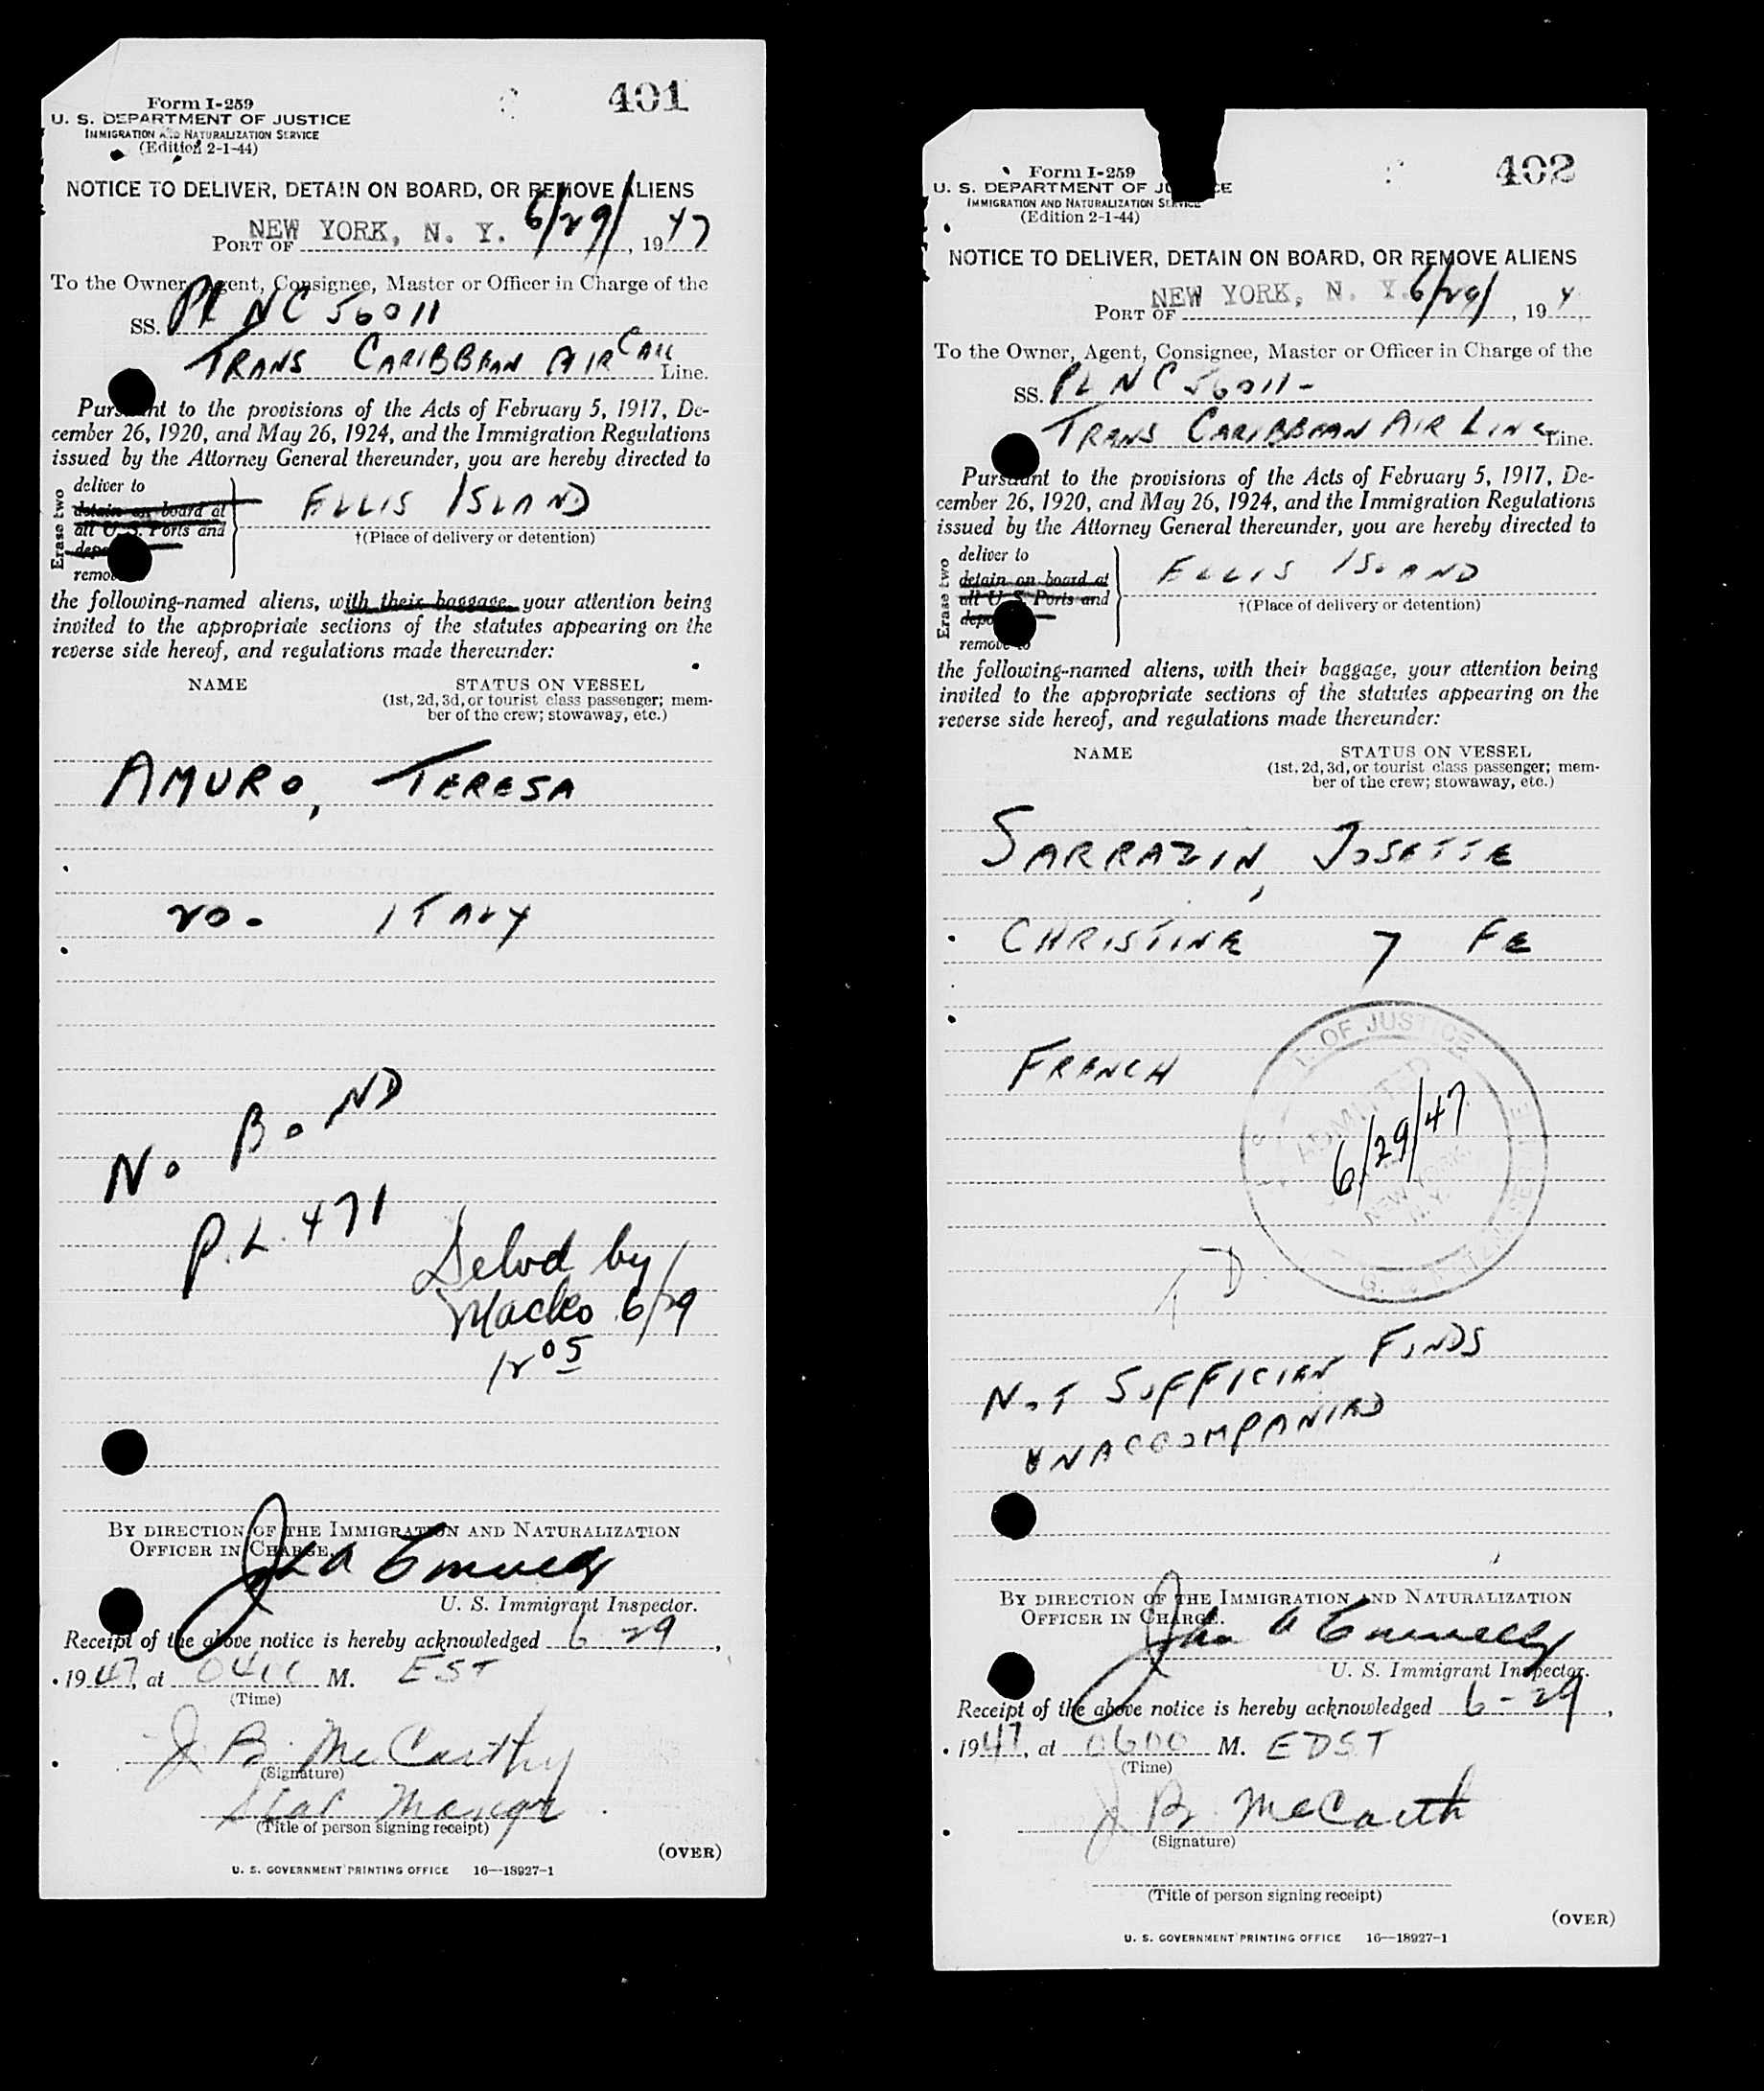 401
Form I-259
U. S. DEPARTMENT OF JUSTICE
IMMIGRATION AND NATURALIZATION SERVICE
(Edition 2-1-44)
NOTICE TO DELIVER, DETAIN ON BOARD, OR REMOVE ALIENS
PORT OF NEW YORK, N. Y. 6/29/, 1947
To the Owner, Agent, Consignee, Master or Officer in Charge of the
SS. PL NC 56011
TRANS CARIBBEAN AIR Line.
Pursuant to the provisions of the Acts of February 5, 1917, De-
cember 26, 1920, and May 26, 1924, and the Immigration Regulations
issued by the Attorney General thereunder, you are hereby directed to
Erase two
deliver to
detain on board at
all U. S. Ports and
depo
remo
ELLIS ISLAND
†(Place of delivery or detention)
the following-named aliens, with their baggage, your attention being
invited to the appropriate sections of the statutes appearing on the
reverse side hereof, and regulations made thereunder:
NAME STATUS ON VESSEL
(1st, 2d, 3d, or tourist class passenger; mem-
ber of the crew; stowaway, etc.)
AMURO, TERESA
20. ITALY
No BOND
P.L. 471
Delvd by
6/29
12 05
BY DIRECTION OF THE IMMIGRATION AND NATURALIZATION
OFFICER IN CHARGE.
Jno A Connelly
U. S. Immigrant Inspector.
Receipt of the above notice is hereby acknowledged 6 29,
1947, at M. EST
(Time)
J B McCarthy
(Signature)
(Title of person signing receipt)
(OVER)
U. S. GOVERNMENT PRINTING OFFICE 16—18927-1
402
Form I-259
U. S. DEPARTMENT OF JUSTICE
IMMIGRATION AND NATURALIZATION SERVICE
(Edition 2-1-44)
NOTICE TO DELIVER, DETAIN ON BOARD, OR REMOVE ALIENS
PORT OF NEW YORK, N. Y. 6/29/, 194
To the Owner, Agent, Consignee, Master or Officer in Charge of the
SS. PL NC 56011-
TRANS CARIBBEAN AIR LINE Line.
Pursuant to the provisions of the Acts of February 5, 1917, De-
cember 26, 1920, and May 26, 1924, and the Immigration Regulations
issued by the Attorney General thereunder, you are hereby directed to
Erase two
deliver to
detain on board at
all U. S. Ports and
depo
remove to
ELLIS ISLAND
†(Place of delivery or detention)
the following-named aliens, with their baggage, your attention being
invited to the appropriate sections of the statutes appearing on the
reverse side hereof, and regulations made thereunder:
NAME STATUS ON VESSEL
(1st, 2d, 3d, or tourist class passenger; mem-
ber of the crew; stowaway, etc.)
SARRAZIN, JOSETTE
CHRISTINE 7 FE
FRENCH
OF JUSTICE
ADMITTED
6/29/47
NEW YORK,
N. Y.
T D.
NOT SUFFICIEN FUNDS
UNACCOMPANIED
BY DIRECTION OF THE IMMIGRATION AND NATURALIZATION
OFFICER IN CHARGE.
Jno A Connelly
U. S. Immigrant Inspector.
Receipt of the above notice is hereby acknowledged 6-29,
1947, at 0600 M. EDST
(Time)
J B McCarth
(Signature)
(Title of person signing receipt)
(OVER)
U. S. GOVERNMENT PRINTING OFFICE 16—18927-1